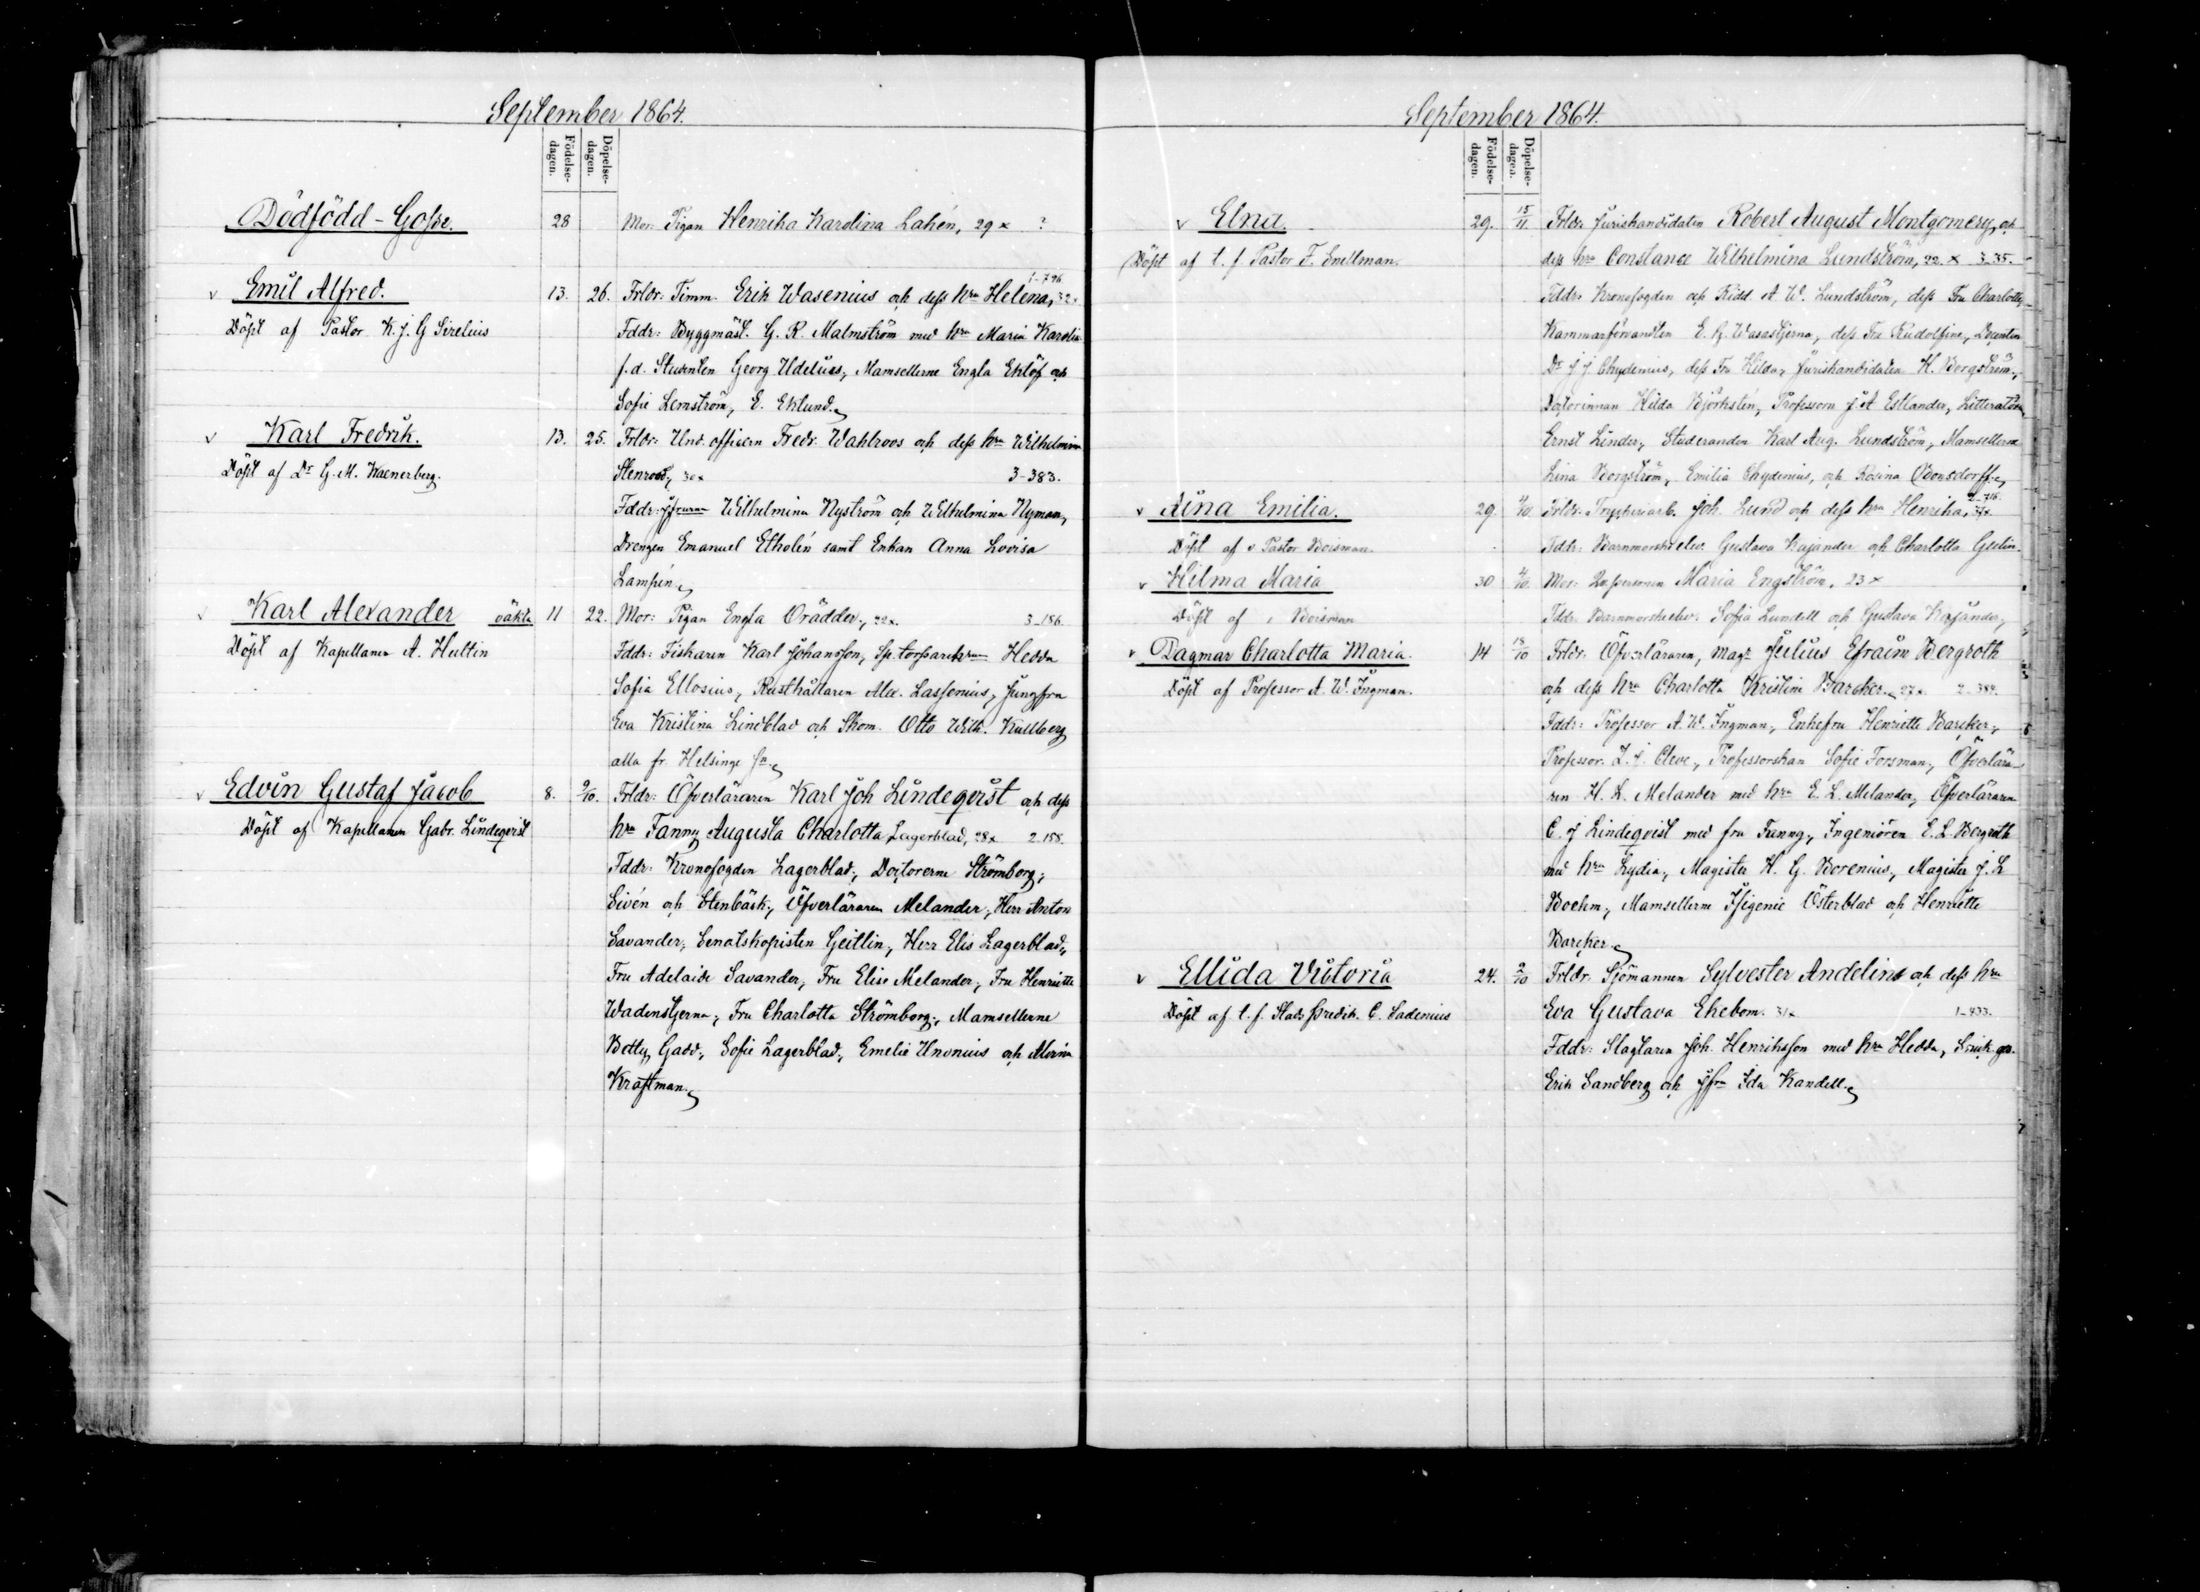 September 1864.
Födelse-dagen. Döpelse-dagen.
Dödfödd-Gosse. 28 Mor: Pigan Henrika Karolina Lahén, 29 x ?
1-796
v Emil Alfred. 13. 26. Frldr: Timm. Erik Wasenius och dess hru Helena, 32 x
Döpt af Pastor K. J. G Sirelius Fddr: Byggmäst. G. R. Malmström med hru Maria Karolin
f.d. Studenten Georg Udelius, Mamsellerne Engla Eklöf och
Sofie Lemström, E. Eklund.
v Karl Fredrik. 13. 25. Frldr: Und. officern Fredr. Wahlroos och dess hru Wilhelmina
Döpt af Dr G. M. Waenerberg. Stenroos, 30x 3-383.
Fddr: Jfrurna Wilhelmina Nyström och Wilhelmina Nyman,
Drengen Emanuel Etholén samt Enkan Anna Lovisa
Lampén
v Karl Alexander oäkta 11 22. Mor: Pigan Engla Orädder, 22x. 3-186
Döpt af Kapellanen A. Hultin Fddr: Fiskaren Karl Johansson, Sp. torparehrun Hedda
Sofia Ellosius, Rusthållaren Alex. Lassenius, Jungfru
Eva Kristina Lindblad och Skom. Otto Wilh. Kullberg
alla fr. Helsinge Sn
v Edvin Gustaf Jacob 8. 9/10. Frldr: Öfverläraren Karl Joh Lindeqvist och dess
Döpt af Kapellanen Gabr. Lindeqvist hru Fanny Augusta Charlotta Lagerblad, 28x 2-158.
Fddr: Kronofogden Lagerblad, Doctorerne Strömborg,
Sivén och Stenbäck, Öfverläraren Melander, Herr Anton
Savander, Senatskopisten Geitlin, Herr Elis Lagerblad,
Fru Adelaide Savander, Fru Elise Melander, Fru Henriette
Wadenstjerna, Fru Charlotta Strömborg, Mamsellerne
Betty Gadd, Sofie Lagerblad, Emelie Unonius och
Kraftman
September 1864.
Födelse-dagen. Döpelse-dagen.
v Elna. 29. 15/11. Frldr: Juriskandidaten Robert August Montgomery, och
Döpt af t. f. Pastor F. Snellman. dess hru Constance Wilhelmina Lundström, 22. x 3-35.
Fddr: Kronofogden och Ridd. A. W. Lundström, dess Fru Charlotte,
Kammarförvandten E. G. Wasastjerna, dess Fru Rudolfine, Docenten
Dr J J Chydenius, dess Fru Hilda, Juriskandidaten H. Borgström,
Doctorinnan Hilda Björkstén, Professorn J. A Estlander, Litteratören
Ernst Linder, Studeranden Karl Aug. Lundström, Mamsellerne
Lina Borgström, Emilia Chydenius, och Rosina Bonsdorff
v Aina Emilia. 29 4/10. Frldr: Joh. Lund och dess hru Henrika,
Döpt af v Pastor Boisman. Fddr: Barnmorskeelev. Gustava Kajander och Charlotta
v Hilma Maria 30 4/10. Mor: Maria Engström, 23 x
Döpt af Boisman Fddr: Barnmorskeelev. Sofia Lundell och Gustava Kajander,
v Dagmar Charlotta Maria. 14 18/10 Frldr: Öfverläraren, Magr Julius Efraim Bergroth
Döpt af Professor A. W. Ingman. och dess hru Charlotta Kristina Barcker. 27x. 2-384.
Fddr: Professor A. W. Ingman, Enkefru Henriette Barcker,
Professor Z. J. Cleve, Professorskan Sofie Forsman, Öfverlära-
ren H. L. Melander med hru E. L. Melander, Öfverläraren
C. J Lindeqvist med fru Fanny, Ingeniören E. L. Bergroth
med hru Lydia, Magister H. G. Borenius, Magister J. L
Boehm, Mamsellerne Ifigenie Österblad och Henriette
Barcker.
v Ellida Victoria 24. 9/10 Frldr: Sjömannen Sylvester Andelin och dess hru
Döpt af t. f. Stads predik. C. Sadenius Eva Gustava Ekebom. 31x 1-433.
Fddr: Slagtaren Joh. Henriksson med hru Hedda, Snick. ges.
Erik Sandberg och Jfru Ida Kandell.